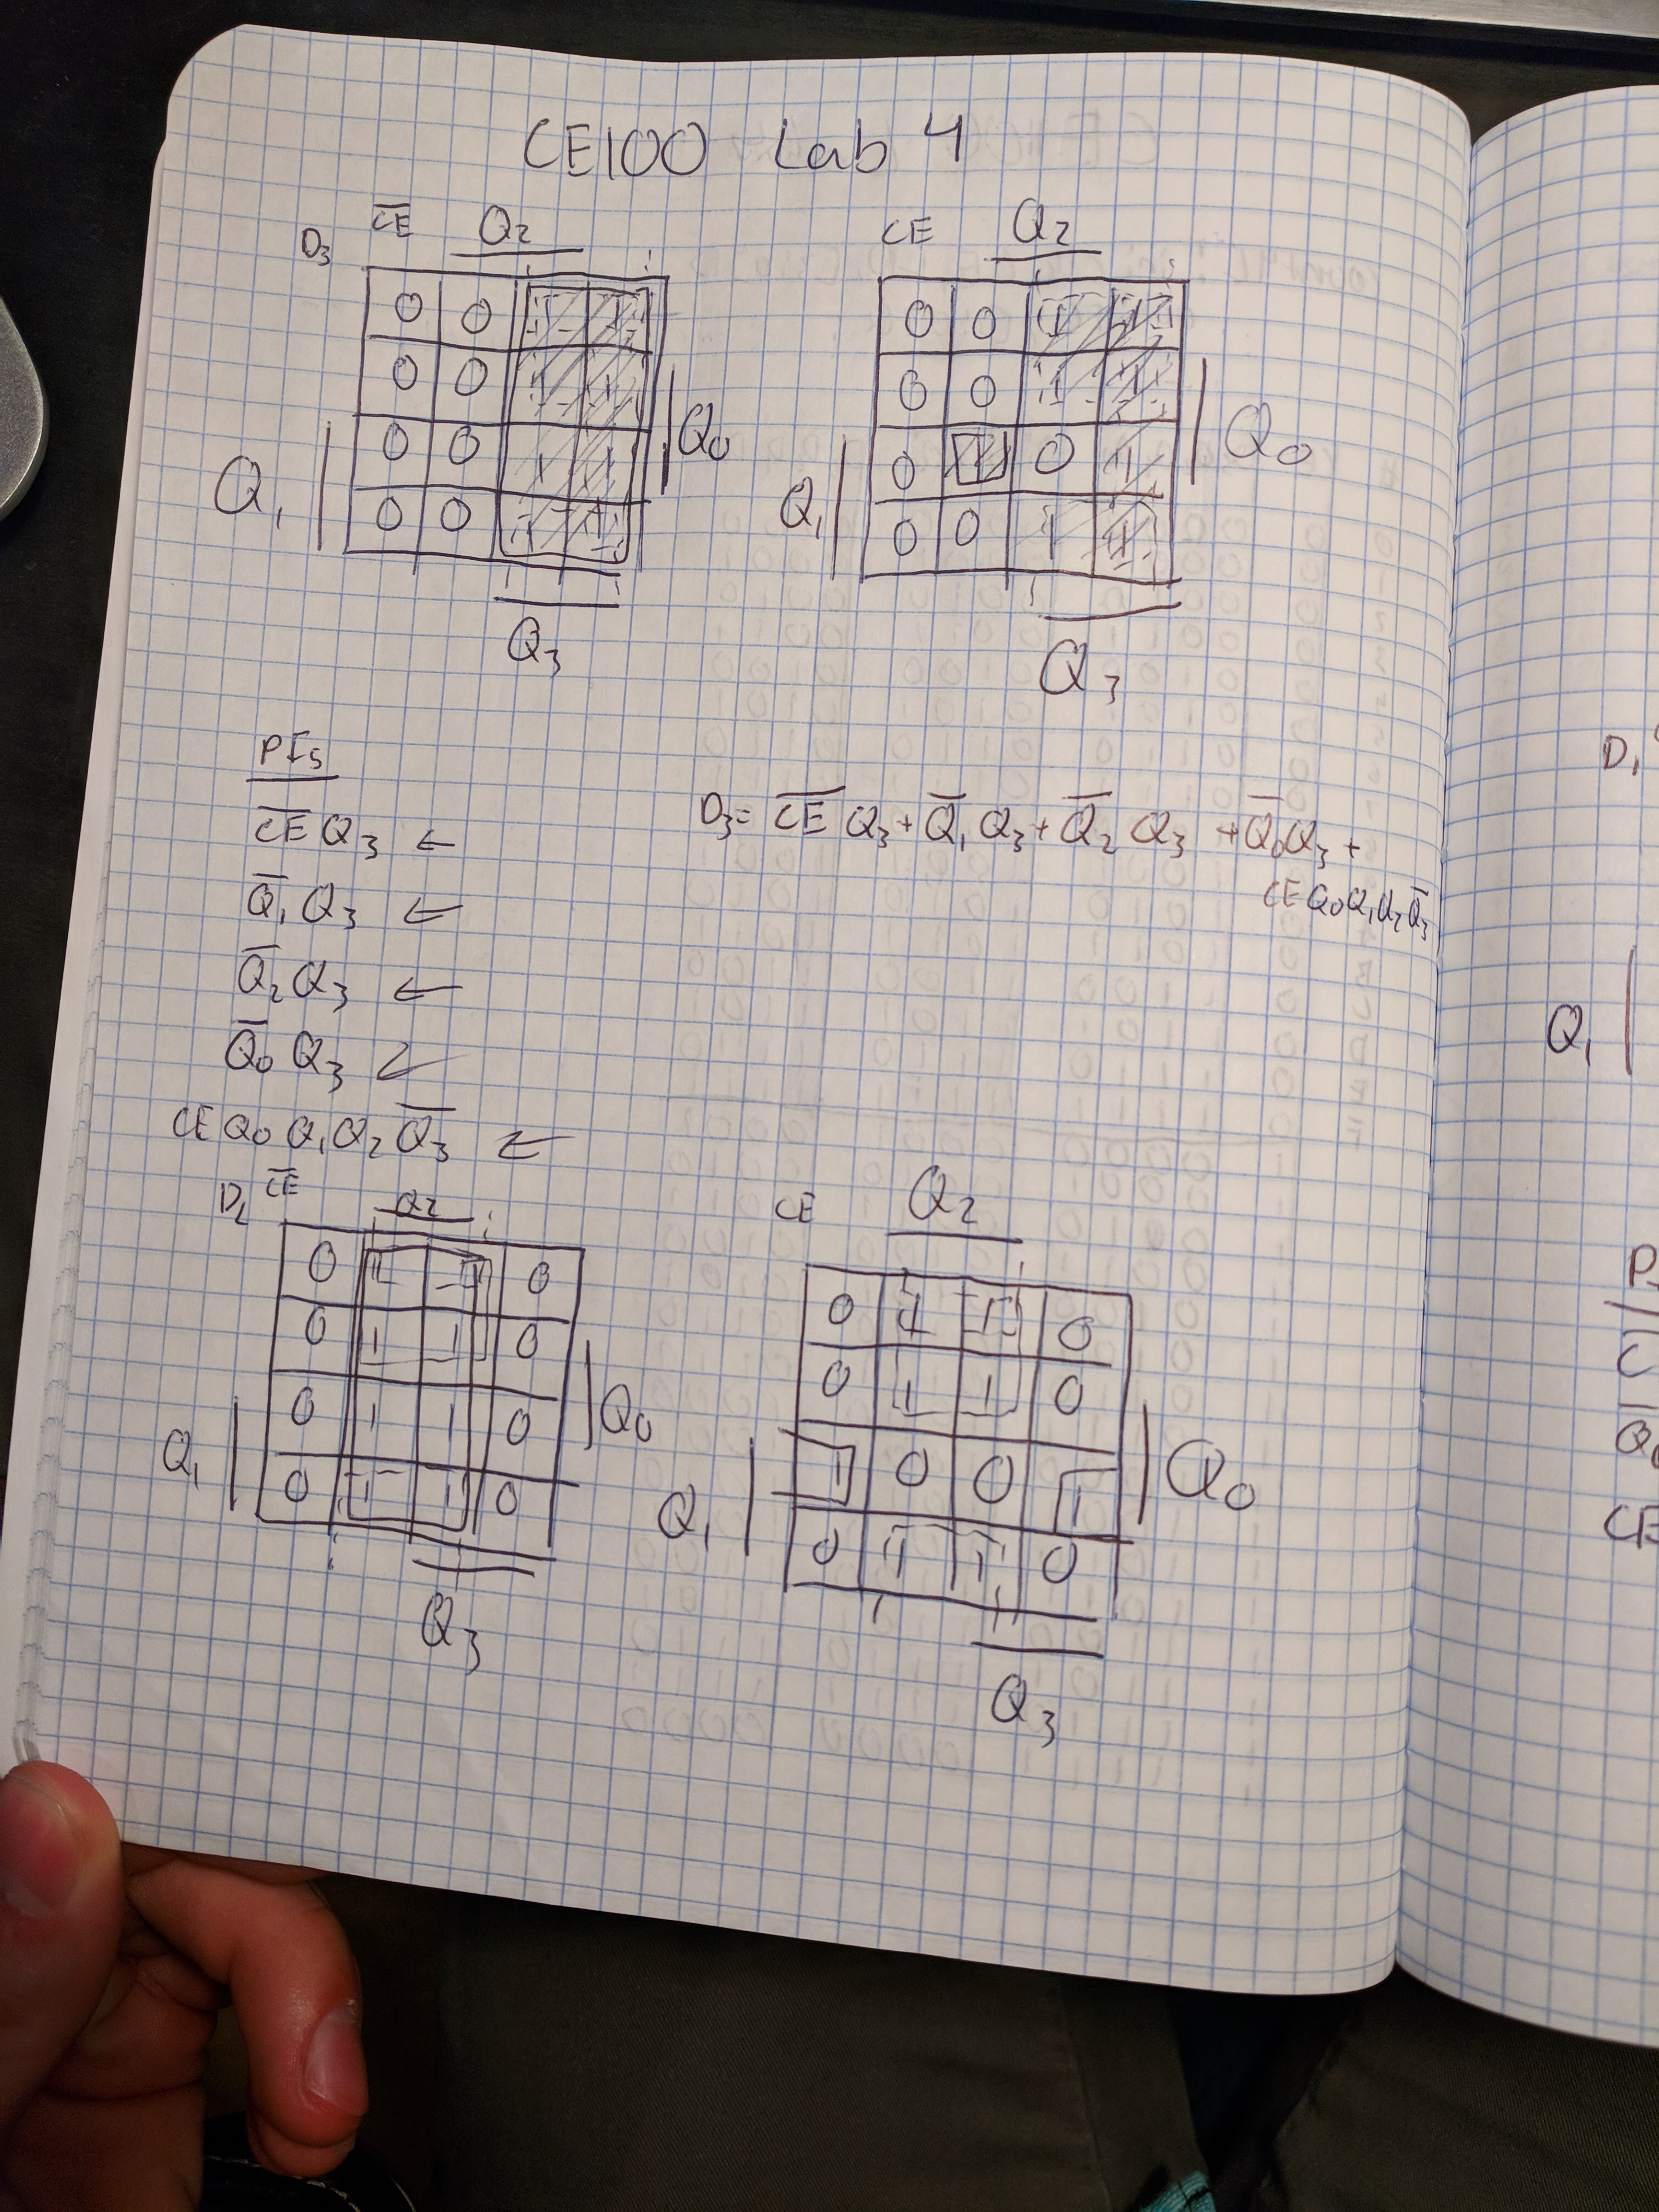 CE100 Lab 4
D₃ C̅E̅ Q₂
0 0 1 1
0 0 1 1
0 0 1 1
0 0 1 1
Q₁
Q₀
Q₃
CE Q₂
0 0 1 1
0 0 1 1
0 1 0 1
0 0 1 1
Q₁
Q₀
Q₃
PIs
C̅E̅ Q₃ ←
Q̅₁ Q₃ ←
Q̅₂ Q₃ ←
Q̅₀ Q₃ ←
CE Q₀ Q₁ Q₂ Q̅₃ ←
D₃ = C̅E̅ Q₃ + Q̅₁ Q₃ + Q̅₂ Q₃ + Q̅₀ Q₃ +
CE Q₀ Q₁ Q₂ Q̅₃
D₂ C̅E̅ Q₂
0 1 1 0
0 1 1 0
0 1 1 0
0 1 1 0
Q₁
Q₀
Q₃
CE Q₂
0 1 1 0
0 1 1 0
1 0 0 1
0 1 1 0
Q₁
Q₀
Q₃
D₁
Q₁